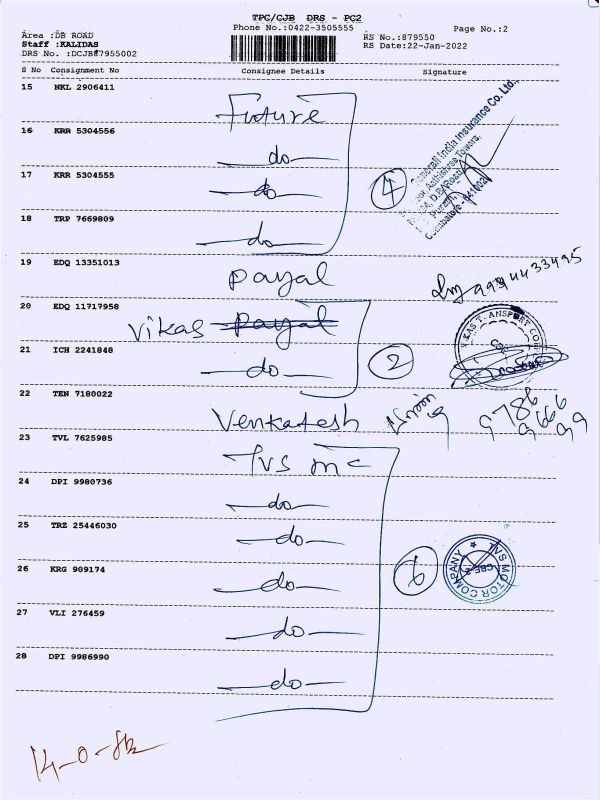 TPC/CJB DRS - PC2
Phone No.:0422-3505555
Page No.:2
Area :DB ROAD
Staff :KALIDAS
DRS No. :DCJB87955002
RS No.:879550
RS Date:22-Jan-2022
S No Consignment No Consignee Details Signature
15 NKL 2906411 Future
16 KRR 5304556 -do-
17 KRR 5304555 -do-
18 TRP 7669809 -do-
4
Generali India Insurance Co. Ltd.,
Coimbatore
19 EDQ 13351013 Payal
9994433495
20 EDQ 11717958 Vikas Payal
21 ICH 2241848 -do-
2
22 TEN 7180022 Venkatesh
9786
9666
99
23 TVL 7625985 TVS mc
24 DPI 9980736 -do-
25 TRZ 25446030 -do-
26 KRG 909174 -do-
27 VLI 276459 -do-
28 DPI 9986990 -do-
6
TVS MOTOR COMPANY
CBE-2